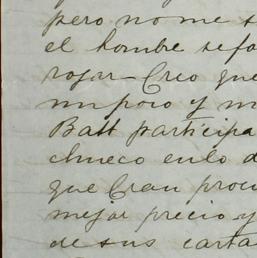 pero no me s
el hombre se fo
rogar - Creo que
un poco y m
Batt participa
chueco en lo d
que Crau procu
mejor precio y
de sus carta